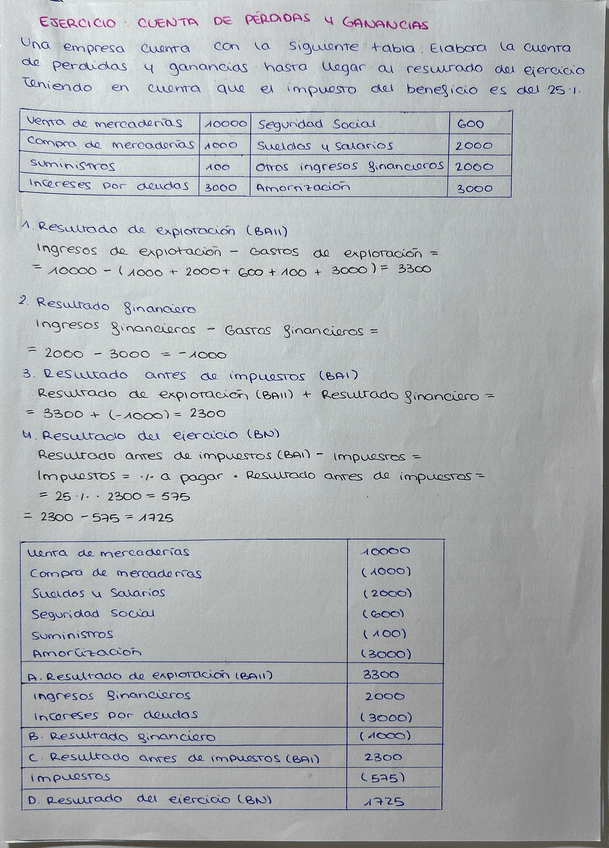 EJERCICIO: CUENTA DE PÉRDIDAS Y GANANCIAS
Una empresa cuenta con la siguiente tabla. Elabora la cuenta
de perdidas y ganancias hasta llegar al resultado del ejercicio
teniendo en cuenta que el impuesto del beneficio es del 25%.
Venta de mercaderías 10000 Seguridad Social 600
Compra de mercaderías 1000 Sueldos y Salarios 2000
Suministros 100 Otros ingresos financieros 2000
Intereses por deudas 3000 Amortización 3000
1. Resultado de explotación (BAII)
Ingresos de explotación - Gastos de explotación =
= 10000 - (1000 + 2000 + 600 + 100 + 3000) = 3300
2. Resultado financiero
Ingresos financieros - Gastos financieros =
= 2000 - 3000 = -1000
3. Resultado antes de impuestos (BAI)
Resultado de explotación (BAII) + Resultado financiero =
= 3300 + (-1000) = 2300
4. Resultado del ejercicio (BN)
Resultado antes de impuestos (BAI) - Impuestos =
Impuestos = % a pagar · Resultado antes de impuestos =
= 25% · 2300 = 575
= 2300 - 575 = 1725
Venta de mercaderías 10000
Compra de mercaderías (1000)
Sueldos y Salarios (2000)
Seguridad Social (600)
Suministros (100)
Amortización (3000)
A. Resultado de explotación (BAII) 3300
Ingresos financieros 2000
Intereses por deudas (3000)
B. Resultado financiero (1000)
C. Resultado antes de impuestos (BAI) 2300
Impuestos (575)
D. Resultado del ejercicio (BN) 1725